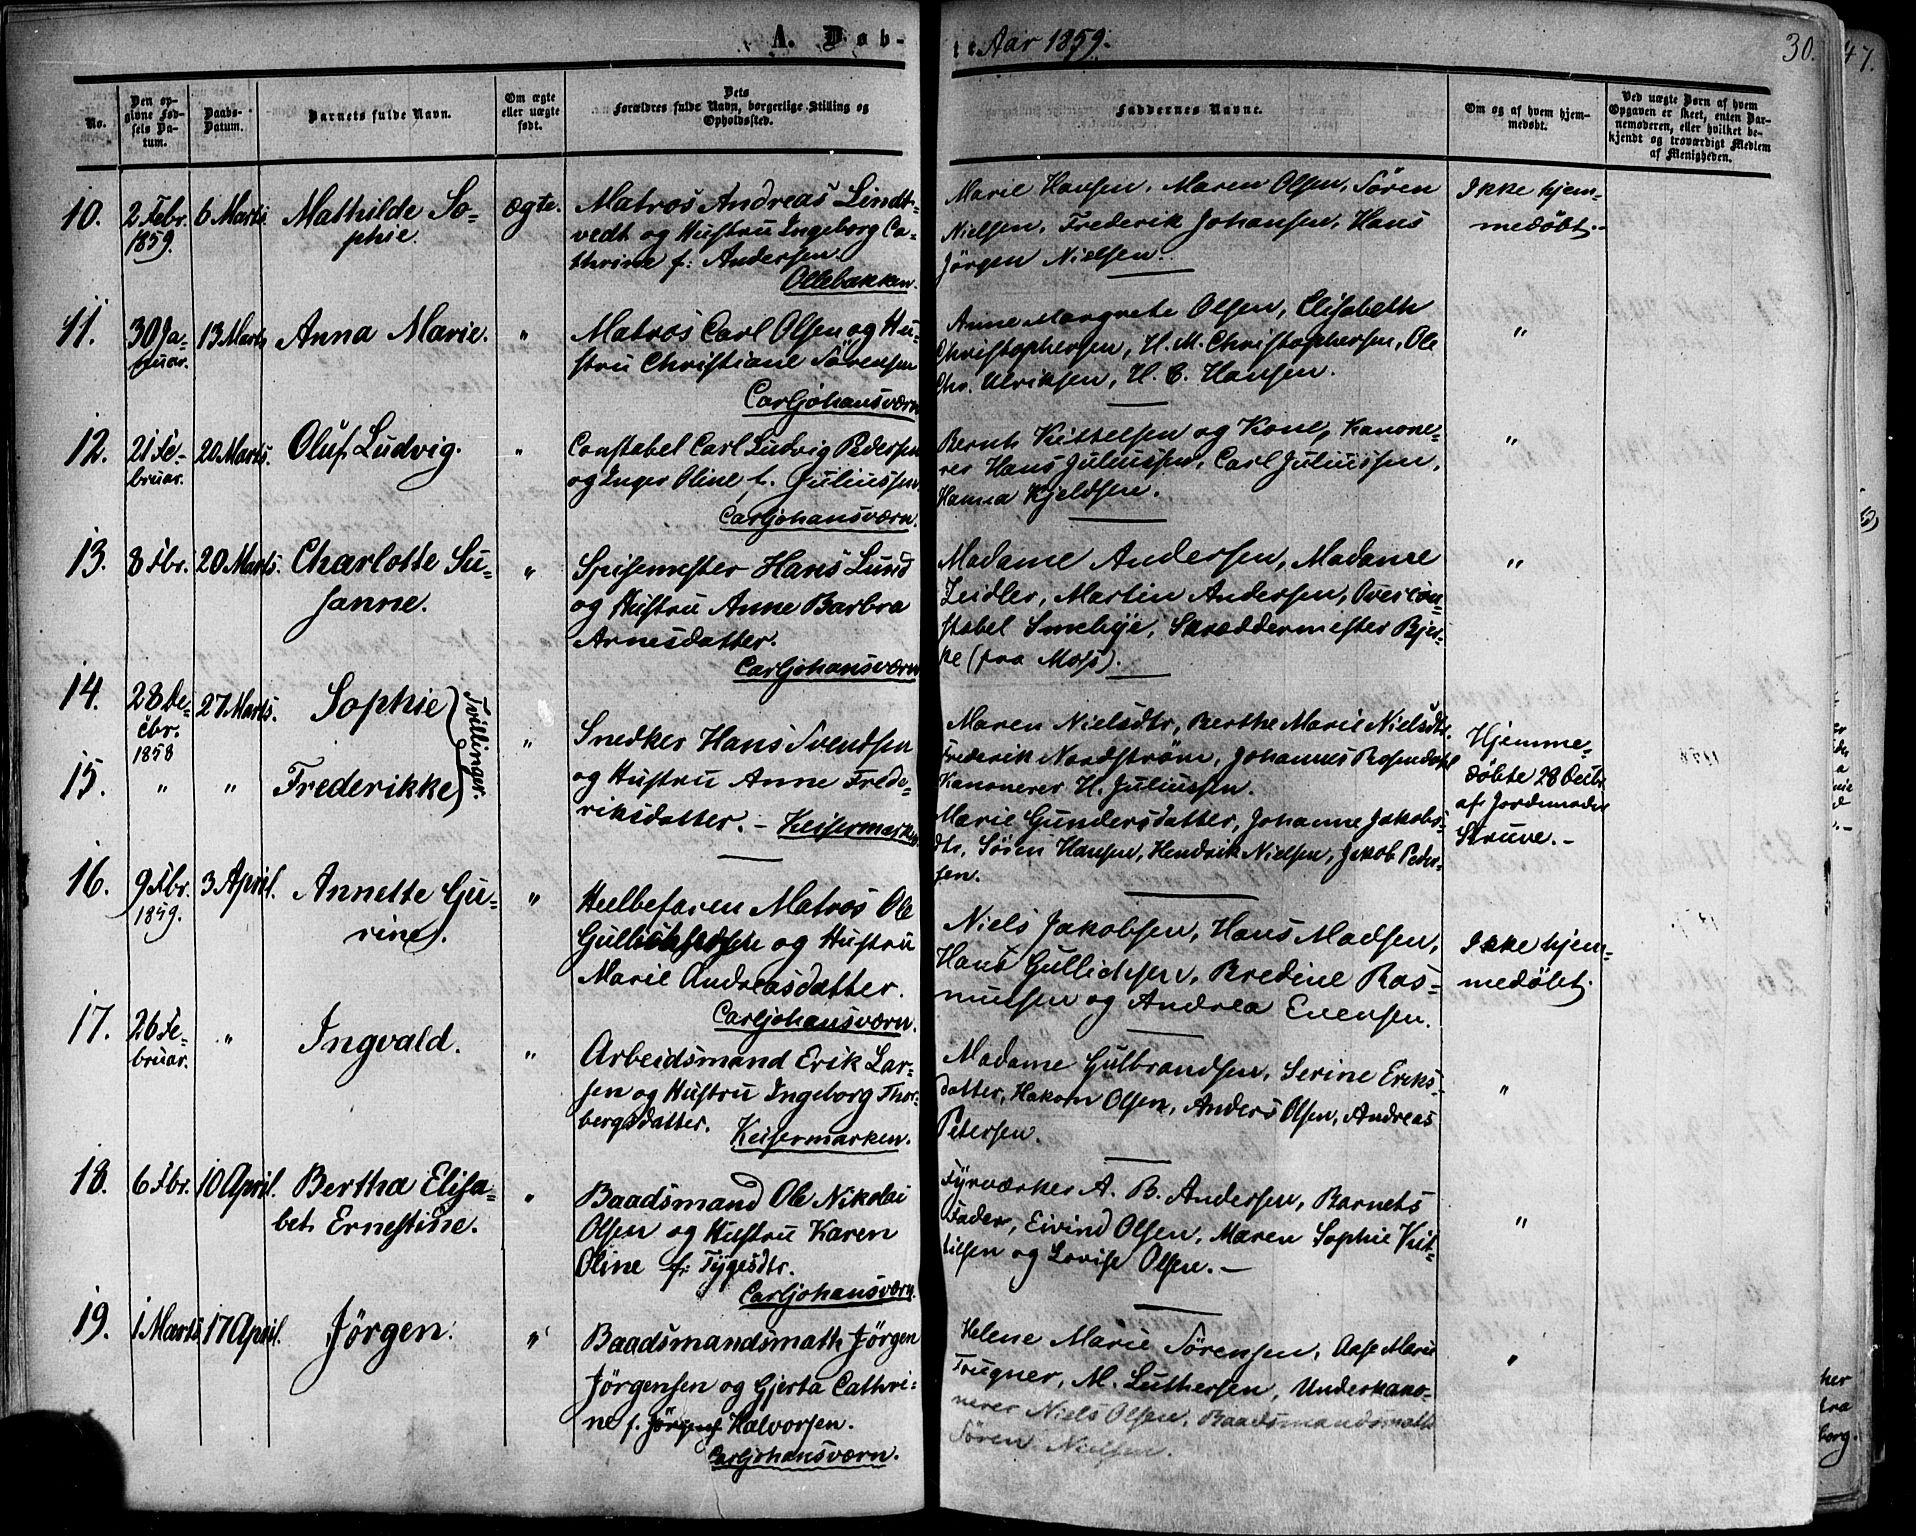 A. Døb-
te Aar 1859.
30.
47.
No.
Den op-
givne Fød-
sels Da-
tum.
Daabs-
Datum.
Barnets fulde Navn.
Om ægte
eller uægte
født.
Dets
Forældres fulde Navn, borgerlige Stilling og
Opholdssted.
Faddernes Navne.
Om og af hvem hjem-
medøbt.
Ved uægte Børn af hvem
Opgaven er skeet, enten Bar-
nemoderen, eller hvilket be-
kjendt og troværdigt Medlem
af Menigheden.
10.
2 Febr.
1859.
6 Marts
Mathilde So-
phie.
ægte.
Matros Andreas Lindt-
vedt og Hustru Ingeborg Ca-
thrine f. Andersen.
Ollebakken.
Marie Hansen, Maren Olsen, Søren
Nielsen, Frederik Johansen, Hans
Jørgen Nielsen.
Ikke hjem-
medøbt.
11.
30 Ja-
nuar.
13 Marts
Anna Marie.
"
Matros Carl Olsen og Hu-
stru Christiane Sørensen
Carljohansværn
Anne Margrete Olsen, Elisabeth
Christophersen, H. M. Christophersen, Ole
Chr. Ulriksen, H. C. Hansen.
"
12.
21 Fe-
bruar.
20 Marts.
Oluf Ludvig.
"
Constabel Carl Ludvig Pedersen
og Inger Oline f. Juliussen
Carljohansværn.
Bernt Kittelsen og Kone, Kanone-
rer Hans Juliussen, Carl Juliussen,
Hanna Kjeldsen.
"
13.
8 Fbr.
20 Marts.
Charlotte Su-
sanne.
"
Spisemester Hans Lund
og Hustru Anne Barbra
Arnesdatter.
Carljohansværn
Madame Andersen, Madame
Zeidler, Martin Andersen, Overcon-
stabel Smehye, Skræddermester Bjer-
ke (fra Moss).
"
14.
28 De-
cbr.
1858
27 Marts.
Sophie
Tvillinger.
"
Snedker Hans Svendsen
og Hustru Anne Frede-
riksdatter. - Keisermarken
Maren Nielsdtr, Berthe Marie Nielsdtr.
Frederik Nordstrøm, Johannes Rosendahl
Kanonerer H. Juliussen.
Hjemme-
døbte 28 Decbr
af Jordemoder
Struve. -
15.
"
"
Frederikke
Marie Gundersdatter, Johanne Jakobs-
dtr, Søren Hansen, Hendrik Nielsen, Jakob Peder-
sen.
16.
9 Fbr.
1859.
3 April.
Annette Gu-
rine.
"
Helbefaren Matros Ole
Gullichsen og Hustru
Marie Andreasdatter.
Carljohansværn.
Niels Jakobsen, Hans Madsen,
Hans Gullichsen, Bredine Ras-
mussen og Andrea Evensen.
Ikke hjem-
medøbt.
17.
26 Fe-
bruar.
"
Ingvald.
"
Arbeidsmand Erik Lar-
sen og Hustru Ingeborg Thor-
bergsdatter. Keisermarken.
Madame Gulbrandsen, Serine Eriks-
datter, Hakon Olsen, Anders Olsen, Andreas
Petersen.
"
18.
6 Fbr.
10 April.
Bertha Elisa-
bet Ernestine.
"
Baadsmand Ole Nikolai
Olsen og Hustru Karen
Oline f. Tygesdtr.
Carljohansværn.
Fyrværker A. B. Andersen, Barnets
Fader, Eivind Olsen, Maren Sophie Kit-
tilsen og Lovise Olsen. -
"
19.
1 Marts
17 April.
Jørgen.
"
Baadsmandsmath Jørgen
Jørgensen og Gjerta Cathri-
ne f. Halvorsen.
Carljohansværn.
Helene Marie Sørensen, Aase Marie
Trugner, M. Luthersen, Underkano-
nerer Niels Olsen, Baadsmandsmath
Søren Nielsen.
"